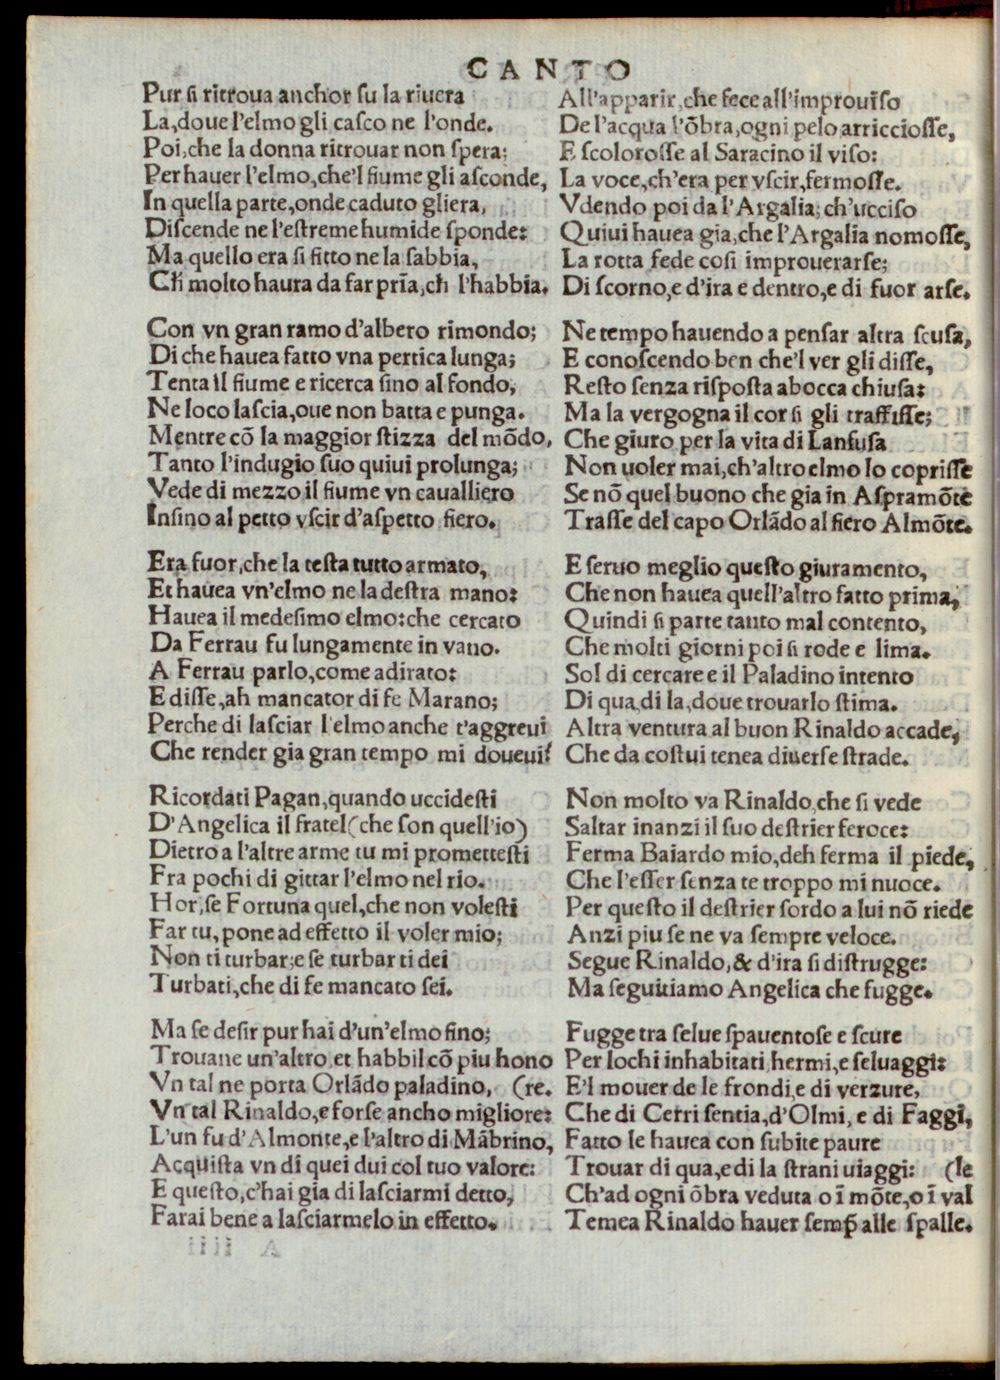 CANTO
Pur ſi ritroua anchor ſu la riuera
La, doue l'elmo gli caſco ne l'onde.
Poi, che la donna ritrouar non ſpera;
Per hauer l'elmo, che'l fiume gli aſconde,
In quella parte, onde caduto gliera,
Diſcende ne l'eſtreme humide ſponde:
Ma quello era ſi fitto ne la ſabbia,
Ch̄ molto haura da far prīa, ch̄ l'habbia.
Con vn gran ramo d'albero rimondo;
Di che hauea fatto vna pertica lunga;
Tenta il fiume e ricerca ſino al fondo,
Ne loco laſcia, oue non batta e punga.
Mentre cō la maggior ſtizza del mōdo,
Tanto l'indugio ſuo quiui prolunga;
Vede di mezzo il fiume vn caualliero
Inſino al petto vſcir d'aſpetto fiero.
Era fuor, che la teſta tutto armato,
Et hauea vn'elmo ne la deſtra mano:
Hauea il medeſimo elmo: che cercato
Da Ferrau fu lungamente in vano.
A Ferrau parlo, come adirato:
E diſſe, ah mancator di fe Marano;
Perche di laſciar l elmo anche t'aggreui
Che render gia gran tempo mi doueui?
Ricordati Pagan, quando uccideſti
D'Angelica il fratel (che ſon quell'io)
Dietro a l'altre arme tu mi prometteſti
Fra pochi di gittar l'elmo nel rio.
Hor, ſe Fortuna quel, che non voleſti
Far tu, pone ad effetto il voler mio;
Non ti turbar; e ſe turbar ti dei
Turbati, che di fe mancato ſei.
Ma ſe deſir pur hai d'un'elmo fino;
Trouane un'altro, et habbil cō piu hono
Vn tal ne porta Orlādo paladino, (re.
Vn tal Rinaldo, e forſe ancho migliore:
L'un fu d'Almonte, e l'altro di Mābrino,
Acquiſta vn di quei dui col tuo valore:
E queſto, c'hai gia di laſciarmi detto,
Farai bene a laſciarmelo in effetto.
All'apparir, che fece all'improuīſo
De l'acqua l'ōbra, ogni pelo arriccioſſe,
E ſcoloroſſe al Saracino il viſo:
La voce, ch'era per vſcir, fermoſſe.
Vdendo poi da l'Argalia; ch'ucciſo
Quiui hauea gia, che l'Argalia nomoſſe,
La rotta fede coſi improuerarſe;
Di ſcorno, e d'ira e dentro, e di fuor arſe.
Ne tempo hauendo a penſar altra ſcuſa,
E conoſcendo ben che'l ver gli diſſe,
Reſto ſenza riſpoſta a bocca chiuſa:
Ma la vergogna il cor ſi gli traffiſſe;
Che giuro per la vita di Lanfuſa
Non uoler mai, ch'altro elmo lo copriſſe
Se nō quel buono che gia in Aſpramōte
Traſſe del capo Orlādo al fiero Almōte.
E ſeruo meglio queſto giuramento,
Che non hauea quell'altro fatto prima,
Quindi ſi parte tanto mal contento,
Che molti giorni poi ſi rode e lima.
Sol di cercare e il Paladino intento
Di qua, di la, doue trouarlo ſtima.
Altra ventura al buon Rinaldo accade,
Che da coſtui tenea diuerſe ſtrade.
Non molto va Rinaldo, che ſi vede
Saltar inanzi il ſuo deſtrier feroce:
Ferma Baiardo mio, deh ferma il piede,
Che l'eſſer ſenza te troppo mi nuoce.
Per queſto il deſtrier ſordo a lui nō riede
Anzi piu ſe ne va ſempre veloce.
Segue Rinaldo, & d'ira ſi diſtrugge:
Ma ſeguitiamo Angelica che fugge.
Fugge tra ſelue ſpauentoſe e ſcure
Per lochi inhabitati, hermi, e ſeluaggi:
E'l mouer de le frondi, e di verzure,
Che di Cerri ſentia, d'Olmi, e di Faggi,
Fatto le hauea con ſubite paure
Trouar di qua, e di la ſtrani uiaggi: (le
Ch'ad ogni ōbra veduta o ī mōte, o ī val
Temea Rinaldo hauer ſemp̄ alle ſpalle.